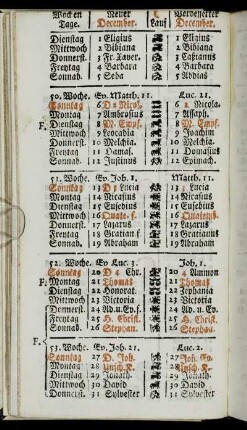 Wochen Neuer Lauf Verbesserter
Tage. December. December.
Dienstag 1 Eligius 1 Eligius
Mittwoch 2 Bibiana 2 Bibiana
Donnerst. 3 Fr. Xaver. 3 Caßianus
Freytag 4 Barbara 4 Barbara
Sonnab. 5 Saba 5 Abdias
50. Woche. Ev. Matth. 11. Luc. 21.
Sonntag 6 D 2 Nicol. 6 2 Nicola.
Montag 7 Ambrosius 7
Dienstag 8 M. Empf. 8 M. Empf.
Mittwoch 9 Leocadia 9 Joachim
Donnerst. 10 Melchia. 10 Melchia.
Freytag 11 Damas. 11 Damasi.
Sonnab. 12 Justinus 12 Epimach.
51. Woche. Ev. Joh. 1. Matth. 11.
Sonntag 13 D 3 Lucia 13 3 Lucia
Montag 14 Nicasius 14 Nicasius
Dienstag 15 Eusebius 15 Eusebius
Mittwoch 16 Quate. f. 16 Quatemb.
Donnerst. 17 Lazarus 17 Lazarus
Freytag 18 Gratian f. 18 Gratianus
Sonnab. 19 Abraham 19 Abraham
52. Woche. Ev. Luc. 3. Joh. 1.
Sonntag 20 D 4 Chr. 20 4 Ammon
Montag 21 Thomas 21 Thomas
Dienstag 22 Honorat. 22 Zephania
Mittwoch 23 Victoria 23 Victoria
Donnerst. 24 Ad. u. Ev. f. 24 Ad. u. Ev.
Freytag 25 H. Christ. 25 H. Christ.
Sonnab. 26 Stephan. 26 Stephan.
53. Woche. Ev. Joh. 21. Luc. 2.
Sonntag 27 D. Joh. 27 Joh. Ev.
Montag 28 Unsch. K. 28 Unsch. K.
Dienstag 29 Jonath. 29 Jonath.
Mittwoch 30 David 30 David
Donnerst. 31 Sylvester 31 Sylvester
F.
F.
F.